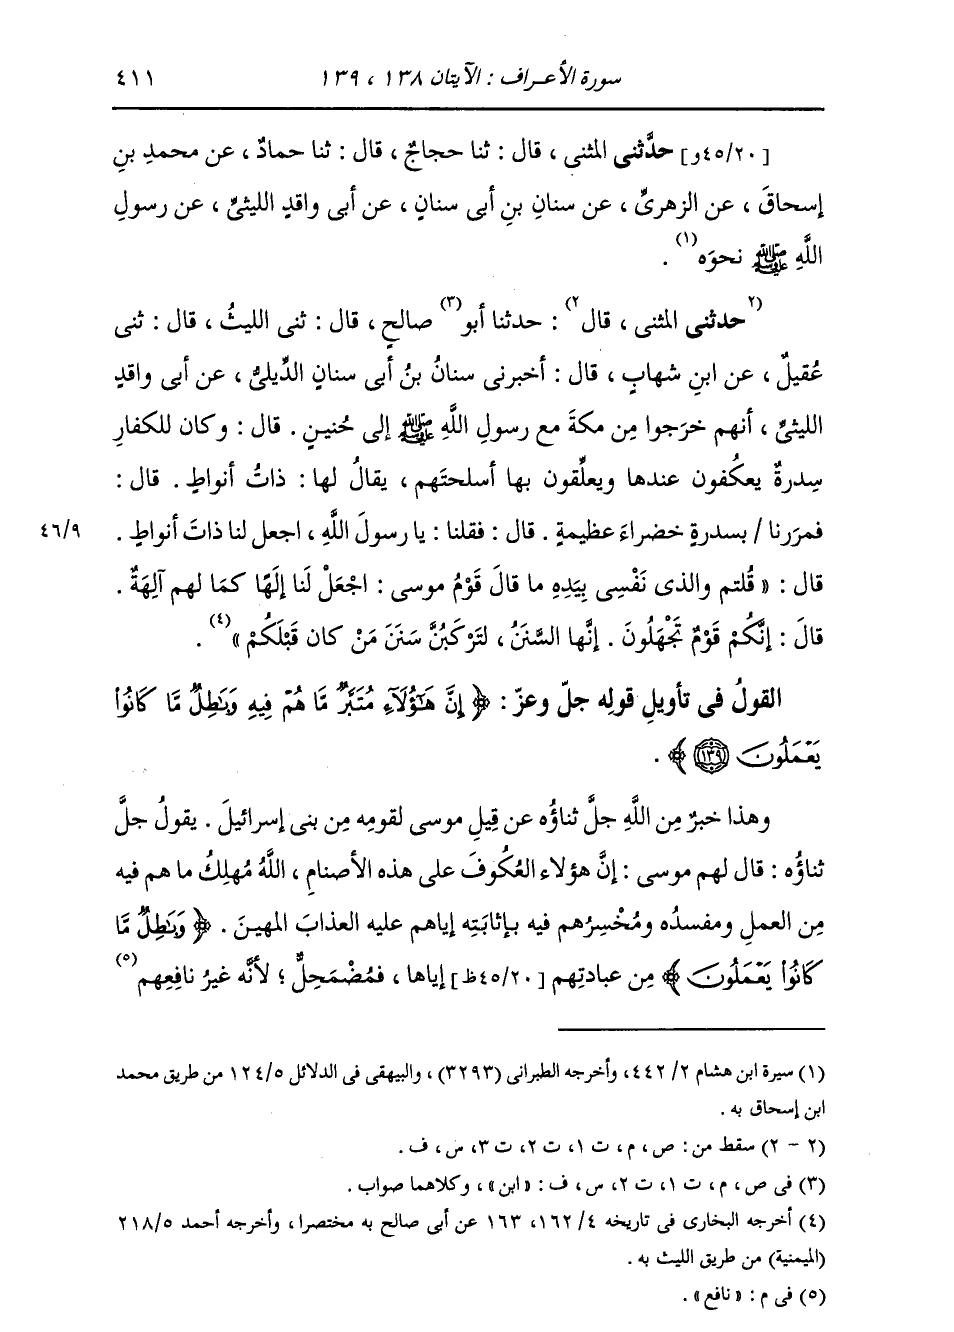 سورة الأعراف : الآيتان ١٣٨ ، ١٣٩ ٤١١
[٤٥/٢٠و] حدَّثنى المثنى ، قال : ثنا حجاجٌ ، قال : ثنا حمادٌ ، عن محمدِ بنِ
إسحاقَ ، عن الزهرىِّ ، عن سنانِ بنِ أبى سنانٍ ، عن أبى واقدٍ الليثىِّ ، عن رسولِ
اللَّهِ ﷺ نحوَه(١) .
(٢)حدثنى المثنى ، قال(٢) : حدثنا أبو(٣) صالحٍ ، قال : ثنى الليثُ ، قال : ثنى
عُقيلٌ ، عن ابنِ شهابٍ ، قال : أخبرنى سنانُ بنُ أبى سنانٍ الدِّيلىُّ ، عن أبى واقدٍ
الليثىِّ ، أنهم خرَجوا مِن مكةَ مع رسولِ اللَّهِ ﷺ إلى حُنينٍ . قال : وكان للكفارِ
سِدرةٌ يعكُفون عندها ويعلِّقون بها أسلحتَهم ، يقالُ لها : ذاتُ أنواطٍ . قال :
فمرَرنا / بسدرةٍ خضراءَ عظيمةٍ . قال : فقلنا : يا رسولَ اللَّهِ ، اجعل لنا ذاتَ أنواطٍ . ٤٦/٩
قال : « قُلتم والذى نَفْسِى بِيَدِهِ ما قالَ قَوْمُ موسى : اجْعَلْ لَنا إلَهًا كمَا لهم آلِهَةٌ .
قالَ : إنَّكُمْ قَوْمٌ تَجْهَلُونَ . إنَّها السَّنَنُ ، لتَرْكَبُنَّ سَنَنَ مَنْ كان قَبْلَكُمْ »(٤) .
القولُ فى تأويلِ قولِه جلّ وعزّ : ﴿ إِنَّ هَٰٓؤُلَآءِ مُتَبَّرٌ مَّا هُمْ فِيهِ وَبَٰطِلٌ مَّا كَانُوا۟
يَعْمَلُونَ ١٣٩ ﴾ .
وهذا خبرٌ مِن اللَّهِ جلَّ ثناؤُه عن قِيلِ موسى لقومِه مِن بنى إسرائيلَ . يقولُ جلَّ
ثناؤُه : قال لهم موسى : إنَّ هؤلاء العُكُوفَ على هذه الأصنامِ ، اللَّهُ مُهلِكُ ما هم فيه
مِن العملِ ومفسدُه ومُخْسِرُهم فيه بإثابَتِه إياهم عليه العذابَ المهينَ . ﴿ وَبَٰطِلٌ مَّا
كَانُوا۟ يَعْمَلُونَ ﴾ مِن عبادتِهم [٤٥/٢٠ظ] إياها ، فمُضْمَحِلٌّ ؛ لأنَّه غيرُ نافعِهم(٥)
(١) سيرة ابن هشام ٢/ ٤٤٢، وأخرجه الطبرانى (٣٢٩٣) ، والبيهقى فى الدلائل ١٢٤/٥ من طريق محمد
ابن إسحاق به .
(٢ - ٢) سقط من : ص ، م ، ت ١، ت ٢، ت ٣، س ، ف .
(٣) فى ص ، م ، ت ١، ت ٢، س ، ف : « ابن » ، وكلاهما صواب .
(٤) أخرجه البخارى فى تاريخه ٤/ ١٦٢، ١٦٣ عن أبى صالح به مختصرا ، وأخرجه أحمد ٢١٨/٥
(الميمنية) من طريق الليث به .
(٥) فى م : « نافع » .